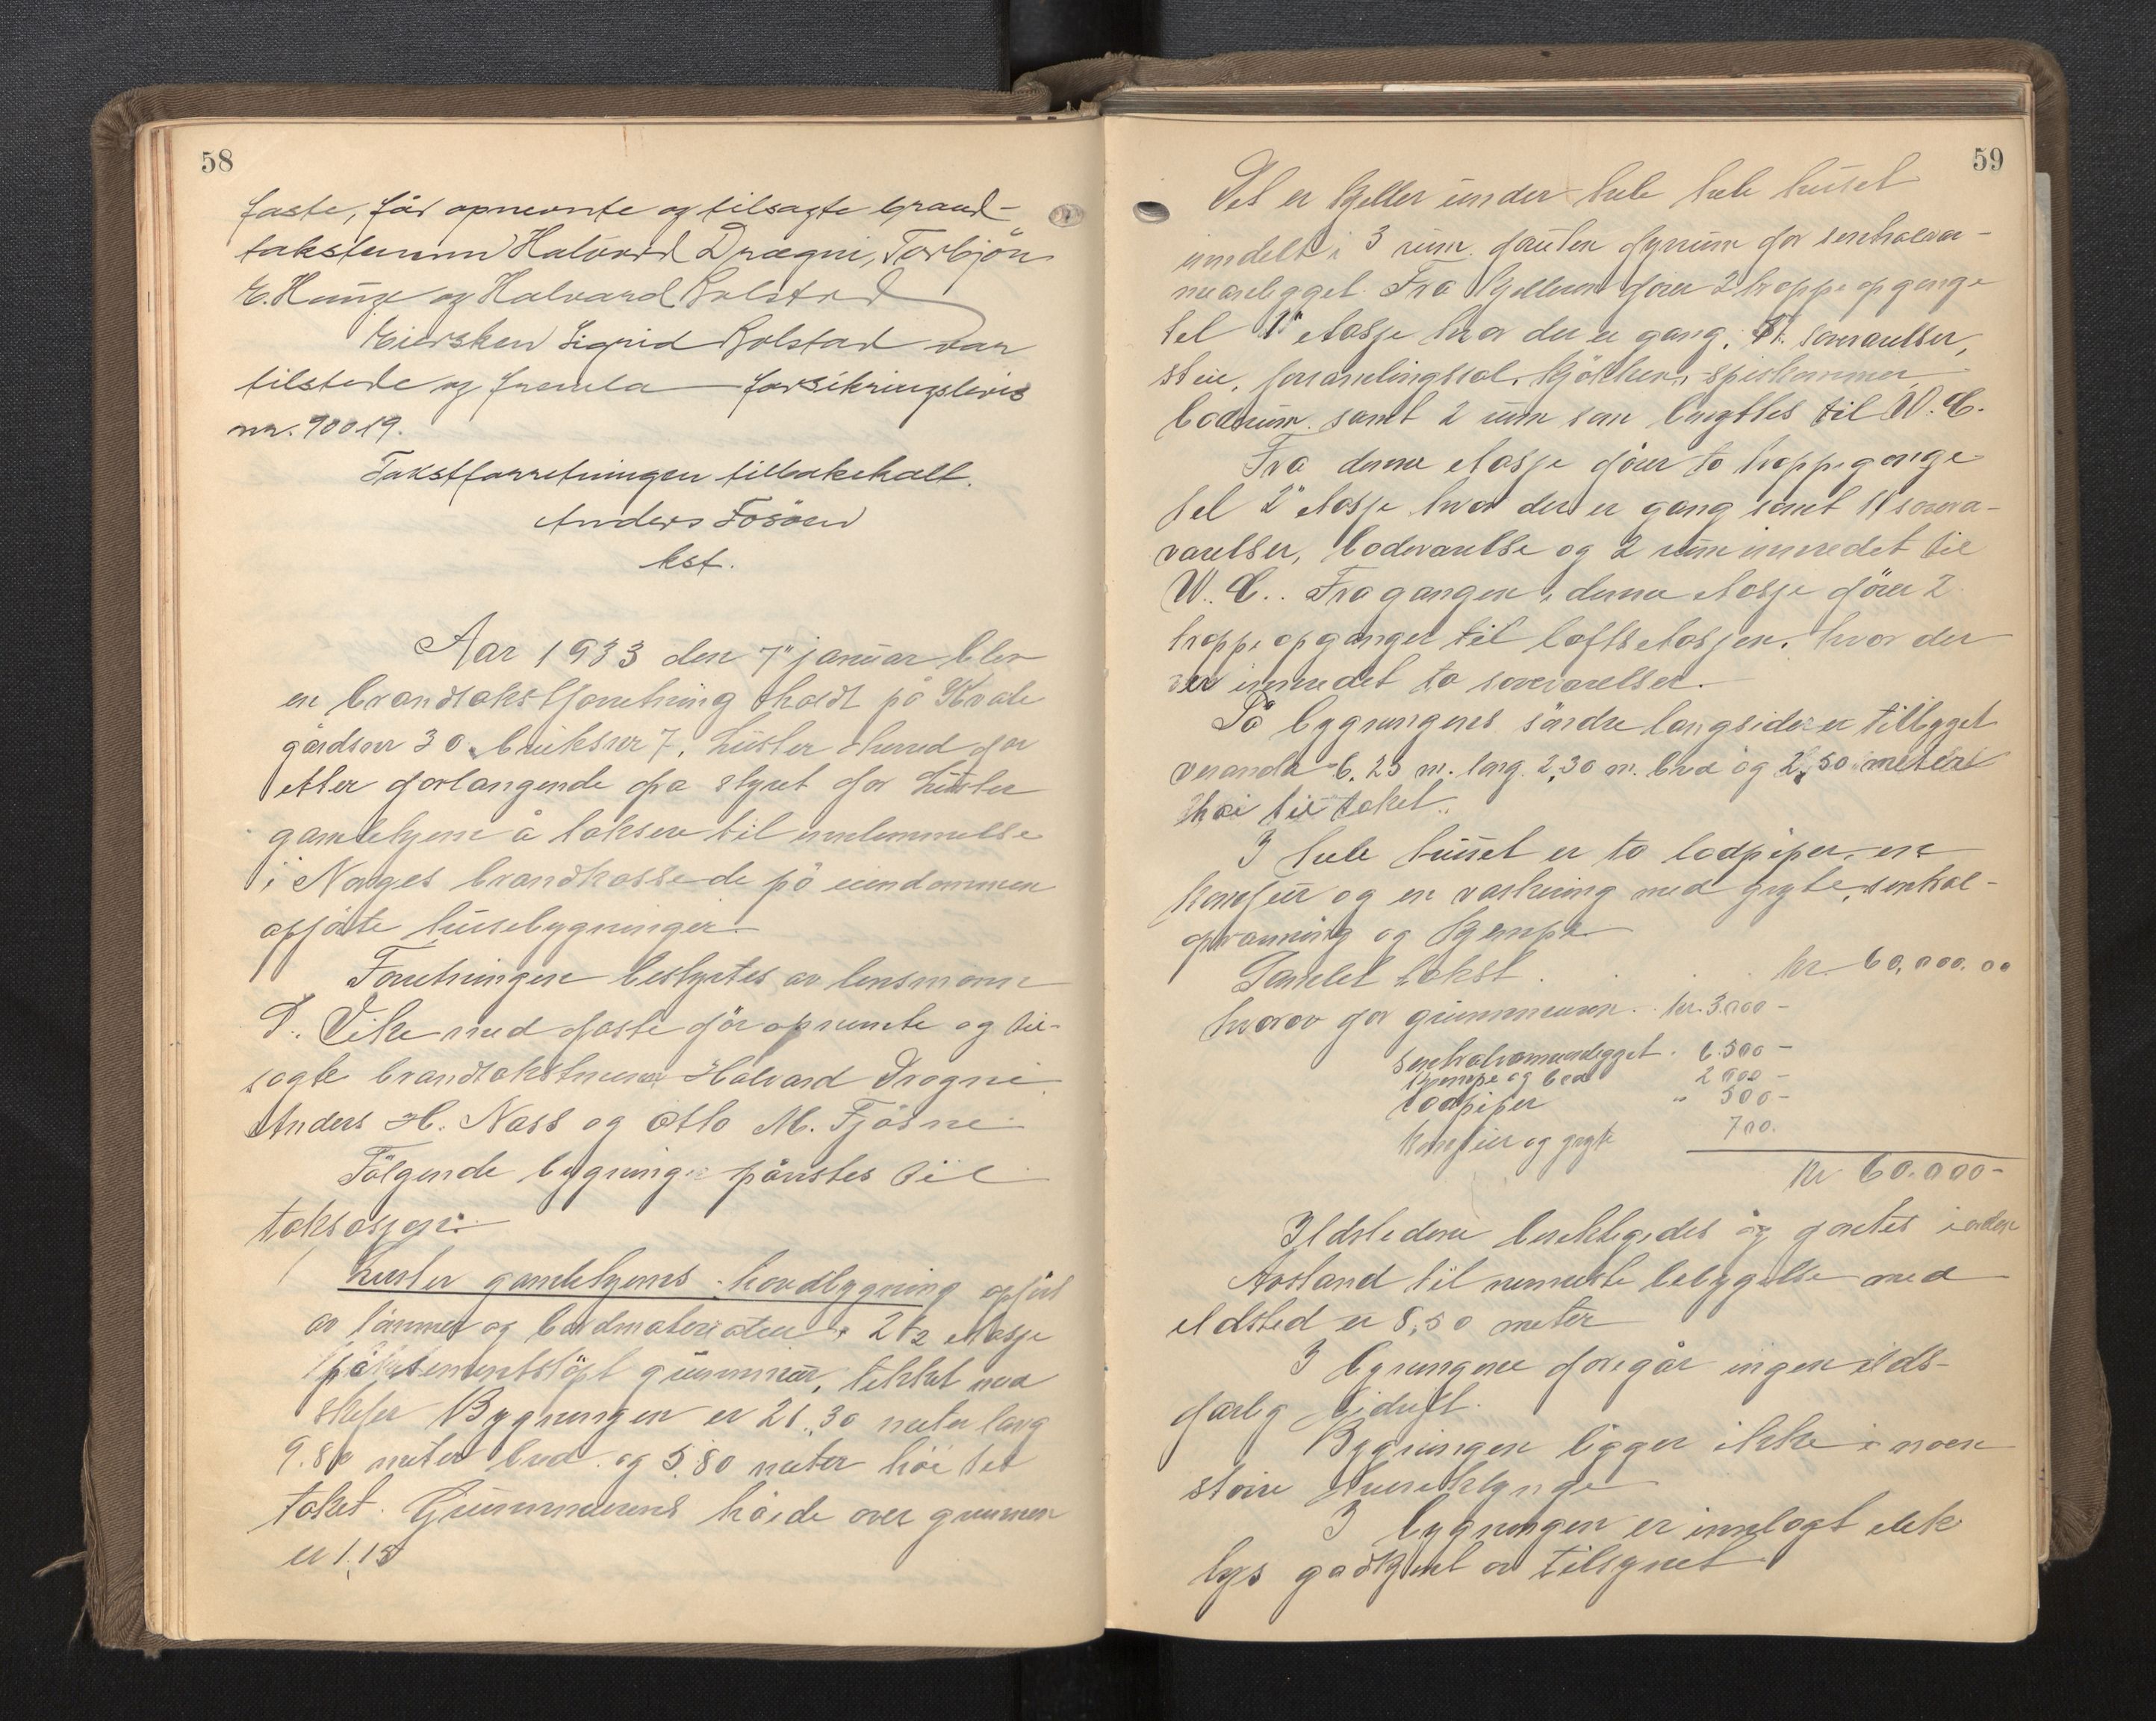 58
faste, før opnevnte og tilsagte brand-
takstmenn Halvard Drægni, Torbjön
E. Hauge og Halvard Bolstad
Eiersken Sigrid Bolstad var
tilstede og fremla forsikringsbevis
nr. 90019.
Takstforretningen tilbakeholt.
Anders Fosöen
kst.
Aar 1933 den 7" januar blev
en brandtakstforretning holdt på Kvale
gårdsnr 30 bruksnr 7, Luster herred for
etter forlangende fra styret for Luster
gamlehjem å taksere til innlemmelse
i Norges brandkasse de på eiendommen
opförte husebygninger.
Forretningen bestyrtes av lensmann
D. Vike med faste för opnevnte og til-
sagte brandtakstmenn Halvard Drægni
Anders H. Næss og Otto M. Fjösne
Fölgende bygninger påvistes til
taksasjon:
1 Luster gamlehjems hovedbygning opfört
av tömmer og bordmaterialer i 2 1/2 etasje
på sementstöpt grunnmur, tekket med
skifer Bygningen er 21,30 meter lang
9.80 meter bred og 5.80 meter höi til
taket. Grunnmurens höide over grunnen
er 1,15
59
Det er kjeller under hele hele huset
inndelt i 3 rum foruten fyrrum for sentralvar-
meanlegget. Fra kjelleren förer 2 trappeopgange
til 1" etasje hvor der er gang, soverærelser,
stue, forsamlingssal, kjökken, spiskammer
bodrum samt 2 rum som benyttes til W.C.
Fra denne etasje förer to trappegange
til 2" etasje hvor der er gang samt 11 sovevæ-
værelser, bodværelse og 2 rum innredet til
W.C.. Fra gangen i denne etasje förer 2
trappeopganger til loftsetasjen, hvor der
er innredet to soveværelser.
På bygningens söndre langside er tilbygget
veranda 6,25 m. lang 2,30 m. bred og 2,50 meter
höi til taket.
I hele huset er to lodpiper, en
komfur og en vaskering med gryte, sentral-
opvarming og kjempe
Samlet takst . . . kr. 60,000.00
hvorav for grunnmuren kr. 3.000 -
sentralvarmeanlegget 6.500 -
kjempe og bad 2 000 -
lodpiper " 500 -
komfur og gryte 700.
kr 60.000 -
Ildstedene besiktigedes og fantes i orden
Avstand til nærmeste bebyggelse med
ildsted er 8,50 meter
I bygningene foregår ingen ilds-
farlig bidrift.
Bygningen ligger ikke i noen
större huseklynge
I bygningen er innlagt elek
lys godkjent av tilsynet